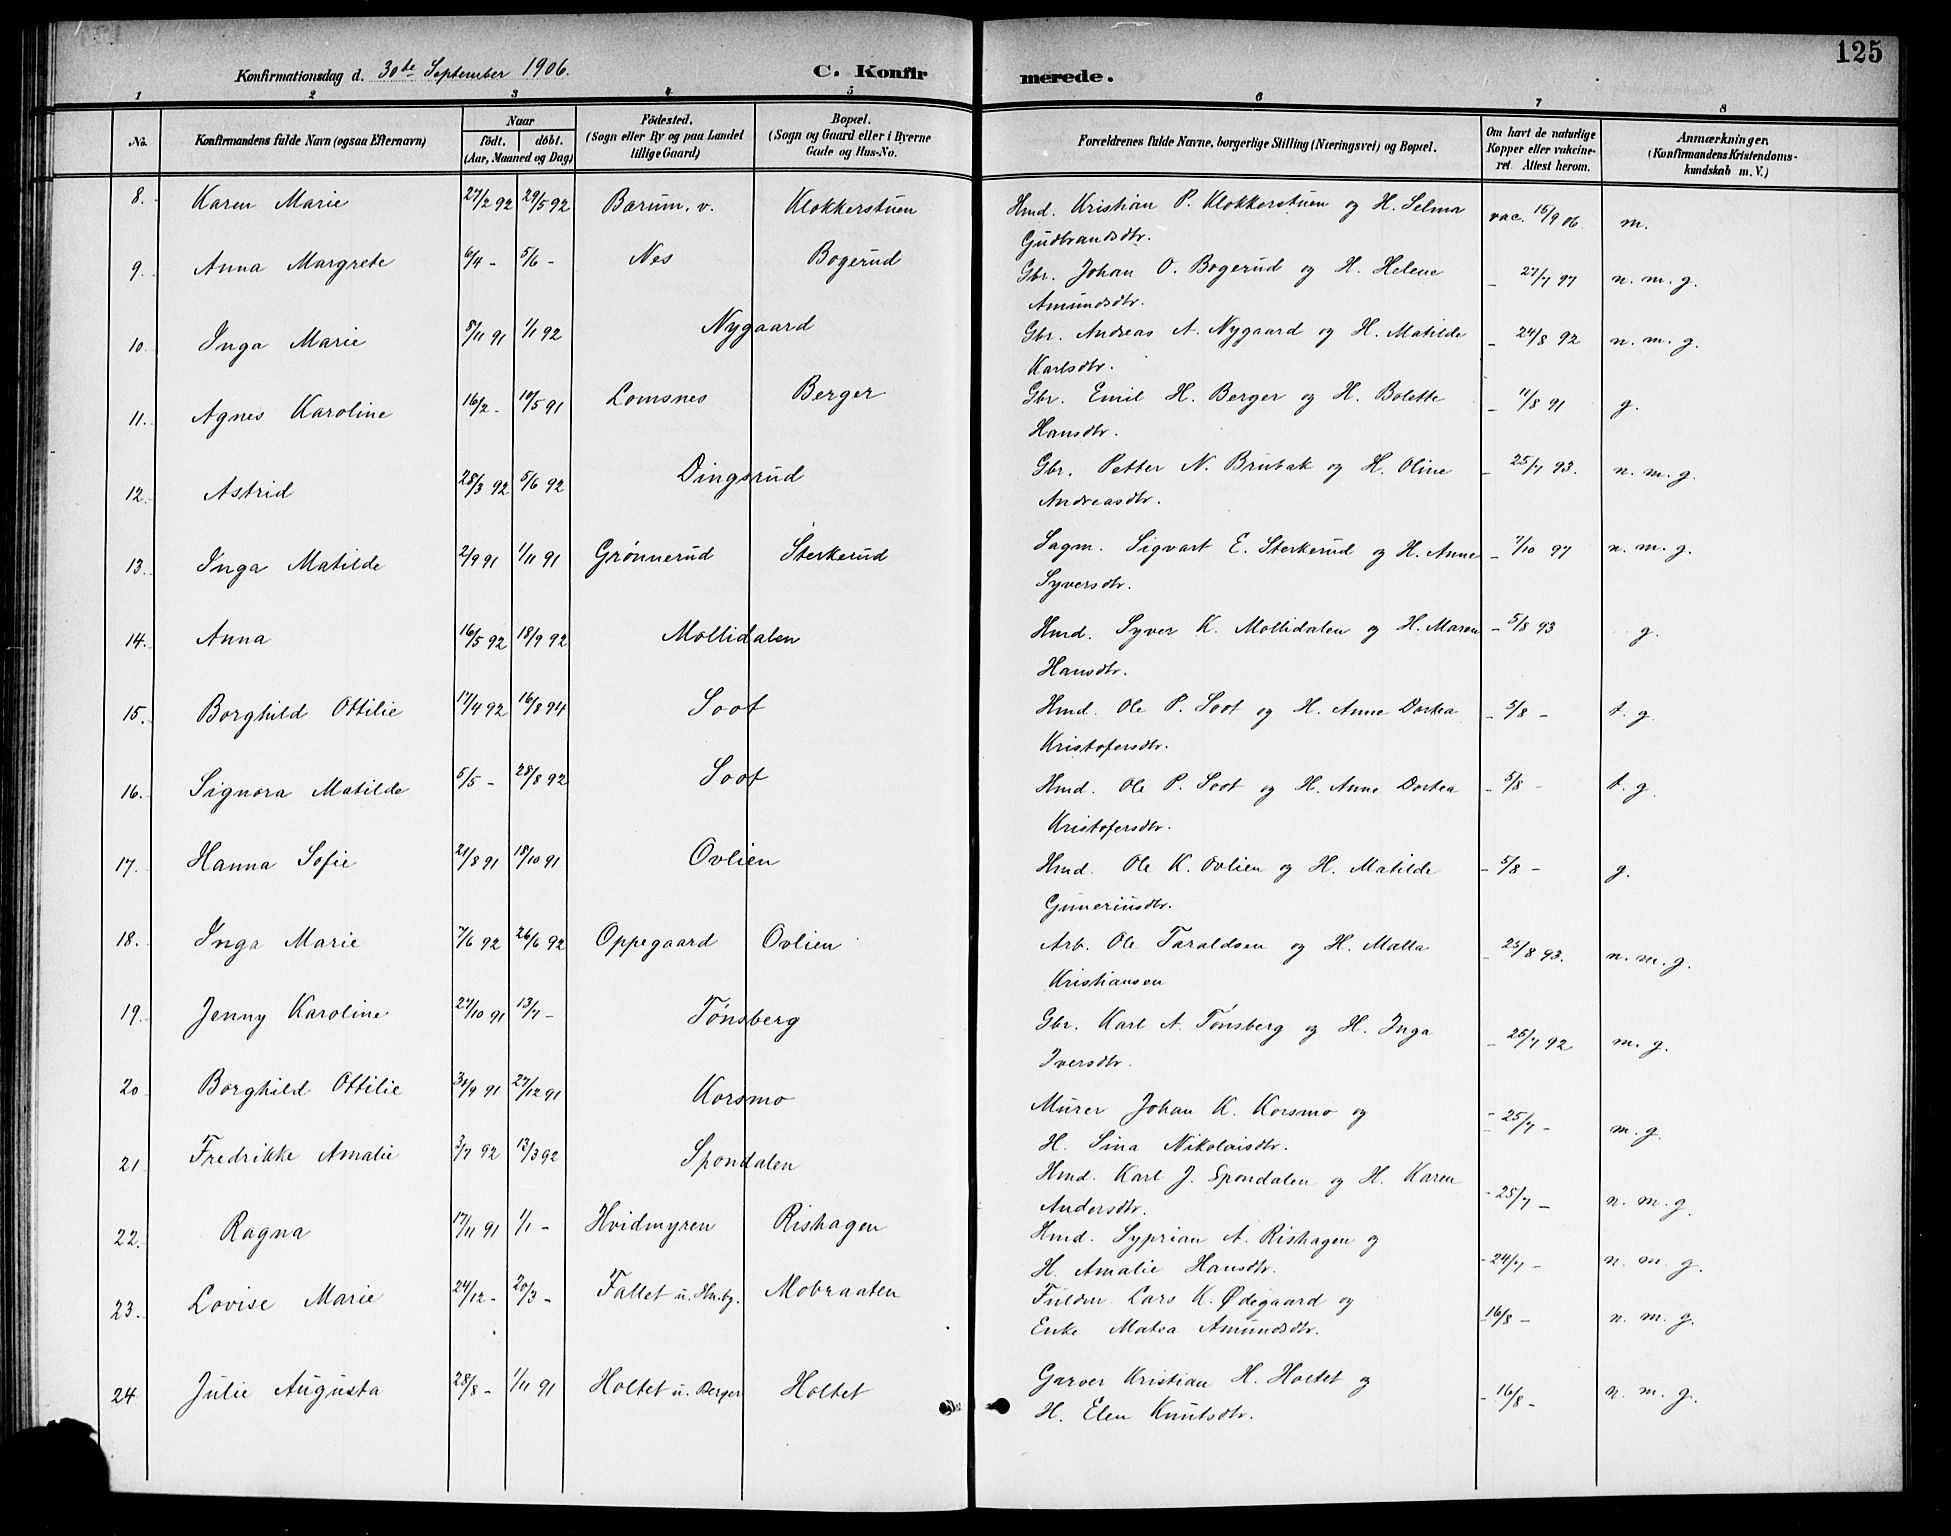 125
Konfirmationsdag d. 30de September 1906.
C. Konfirmerede.
1 2 3 4 5 6 7 8
No.
Konfirmandens fulde Navn (ogsaa Efternavn)
Naar
født. døbt.
(Aar, Maaned og Dag)
Fødested.
(Sogn eller By og paa Landet
tillige Gaard)
Bopæl.
(Sogn og Gaard eller i Byerne
Gade og Hus-No.
Forældrenes fulde Navne, borgerlige Stilling (Næringsvei) og Bopæl.
Om havt de naturlige
Kopper eller vakcine-
ret Attest herom.
Anmærkninger.
(Konfirmandens Kristendoms-
kundskab m. V.)
8. Karen Marie 27/2 92 29/5 92 Bærum, v. Klokkerstuen Hmd. Kristian P. Klokkerstuen og H. Selma vac. 15/9 06 m.
Gudbrandsdtr.
9. Anna Margrete 6/4 - 5/6 - Nes Bogerud Gbr. Johan O. Bogerud og H. Helene - 27/7 97 n. m. g.
Amundsdtr.
10. Inga Marie 8/11 91 1/1 92 Nygaard Gbr. Andreas A. Nygaard og H. Matilde - 24/8 92 n. m. g.
Karlsdtr.
11. Agnes Karoline 16/2 - 10/5 91 Lomsnes Berger Gbr. Emil H. Berger og H. Bolette - 11/8 91 g.
Hansdtr.
12. Astrid 28/3 92 5/6 92 Dingsrud Gbr. Petter N. Brubak og H. Oline - 25/7 93. n. m. g.
Andreasdtr.
13. Inga Matilde 2/9 91 1/11 91 Grønnerud Sterkerud Sagm. Sigvart E. Sterkerud og H. Anne - 7/10 97 n. m. g.
Syversdtr.
14. Anna 16/5 92 18/9 92 Mollidalen Hmd. Syver K. Mollidalen og H. Maren - 5/8 93 g.
Hansdtr.
15. Borghild Ottilie 17/4 92 16/8 94 Soot Hmd. Ole P. Soot og H. Anne Dortea - 5/8 - t. g.
Kristofersdtr.
16. Signora Matilde 5/5 - 28/8 92 Soot Hmd. Ole P. Soot og H. Anne Dortea - 5/8 - t. g.
Kristofersdtr.
17. Hanna Sofie 21/8 91 18/10 91 Ovlien Hmd. Ole K. Ovlien og H. Matilde - 5/8 - g.
Guneriusdtr.
18. Inga Marie 7/6 92 26/6 92 Oppegaard Ovlien Arb. Ole Taraldsen og H. Malla - 25/8 93. n. m. g.
Kristiansen
19. Jenny Karoline 27/10 91 13/7 - Tønsberg Gbr. Karl A. Tønsberg og H. Inga - 25/7 92 m. g.
Iversdtr.
20 Borghild Ottilie 91 27/12 91 Korsmo Murer Johan K. Korsmo og - 25/7 - m. g.
H. Sina Nikolaisdtr.
21 Fredrikke Amalie 92 13/3 92 Spondalen Hmd. Karl J. Spondalen og H. Karen - 25/7 - n. m. g.
Andersdtr.
22. Ragna 17/11 91 1/1 - Hvidmyren Rishagen Hmd. Syprian A. Rishagen og - 24/7 - n. m. g.
H. Amalie Hansdtr.
23. Lovise Marie 24/12 - 20/3 - Fallet u. Mobraaten Fuldm. Lars K. Ødegaard og - 16/8 - n. m. g.
Enke Matea Amundsdtr.
24. Julie Augusta 28/8 - 1/11 91 Holtet u. Berger Holtet Garver Kristian H. Holtet og - 16/8 - n. m. g.
H. Elen Knutsdtr.